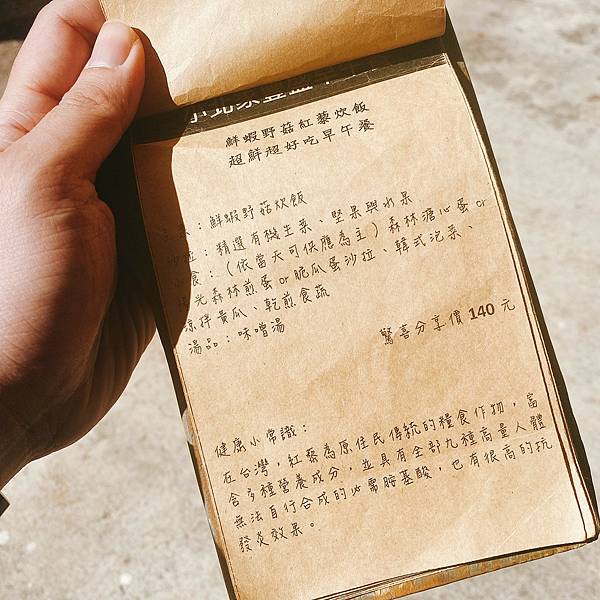 鮮蝦野菇紅藜炊飯
超鮮超好吃早午餐
：鮮蝦野菇炊飯
沙拉：精選有機生菜、堅果與水果
食：（依當天可供應為主）森林溏心蛋 or
光森林煎蛋 or 脆瓜蛋沙拉、韓式泡菜、
涼拌黃瓜、乾煎食蔬
湯品：味噌湯
驚喜分享價 140 元
健康小常識：
在台灣，紅藜為原住民傳統的糧食作物，富
含多種營養成分，並具有全部九種高量人體
無法自行合成的必需胺基酸，也有很高的抗
發炎效果。